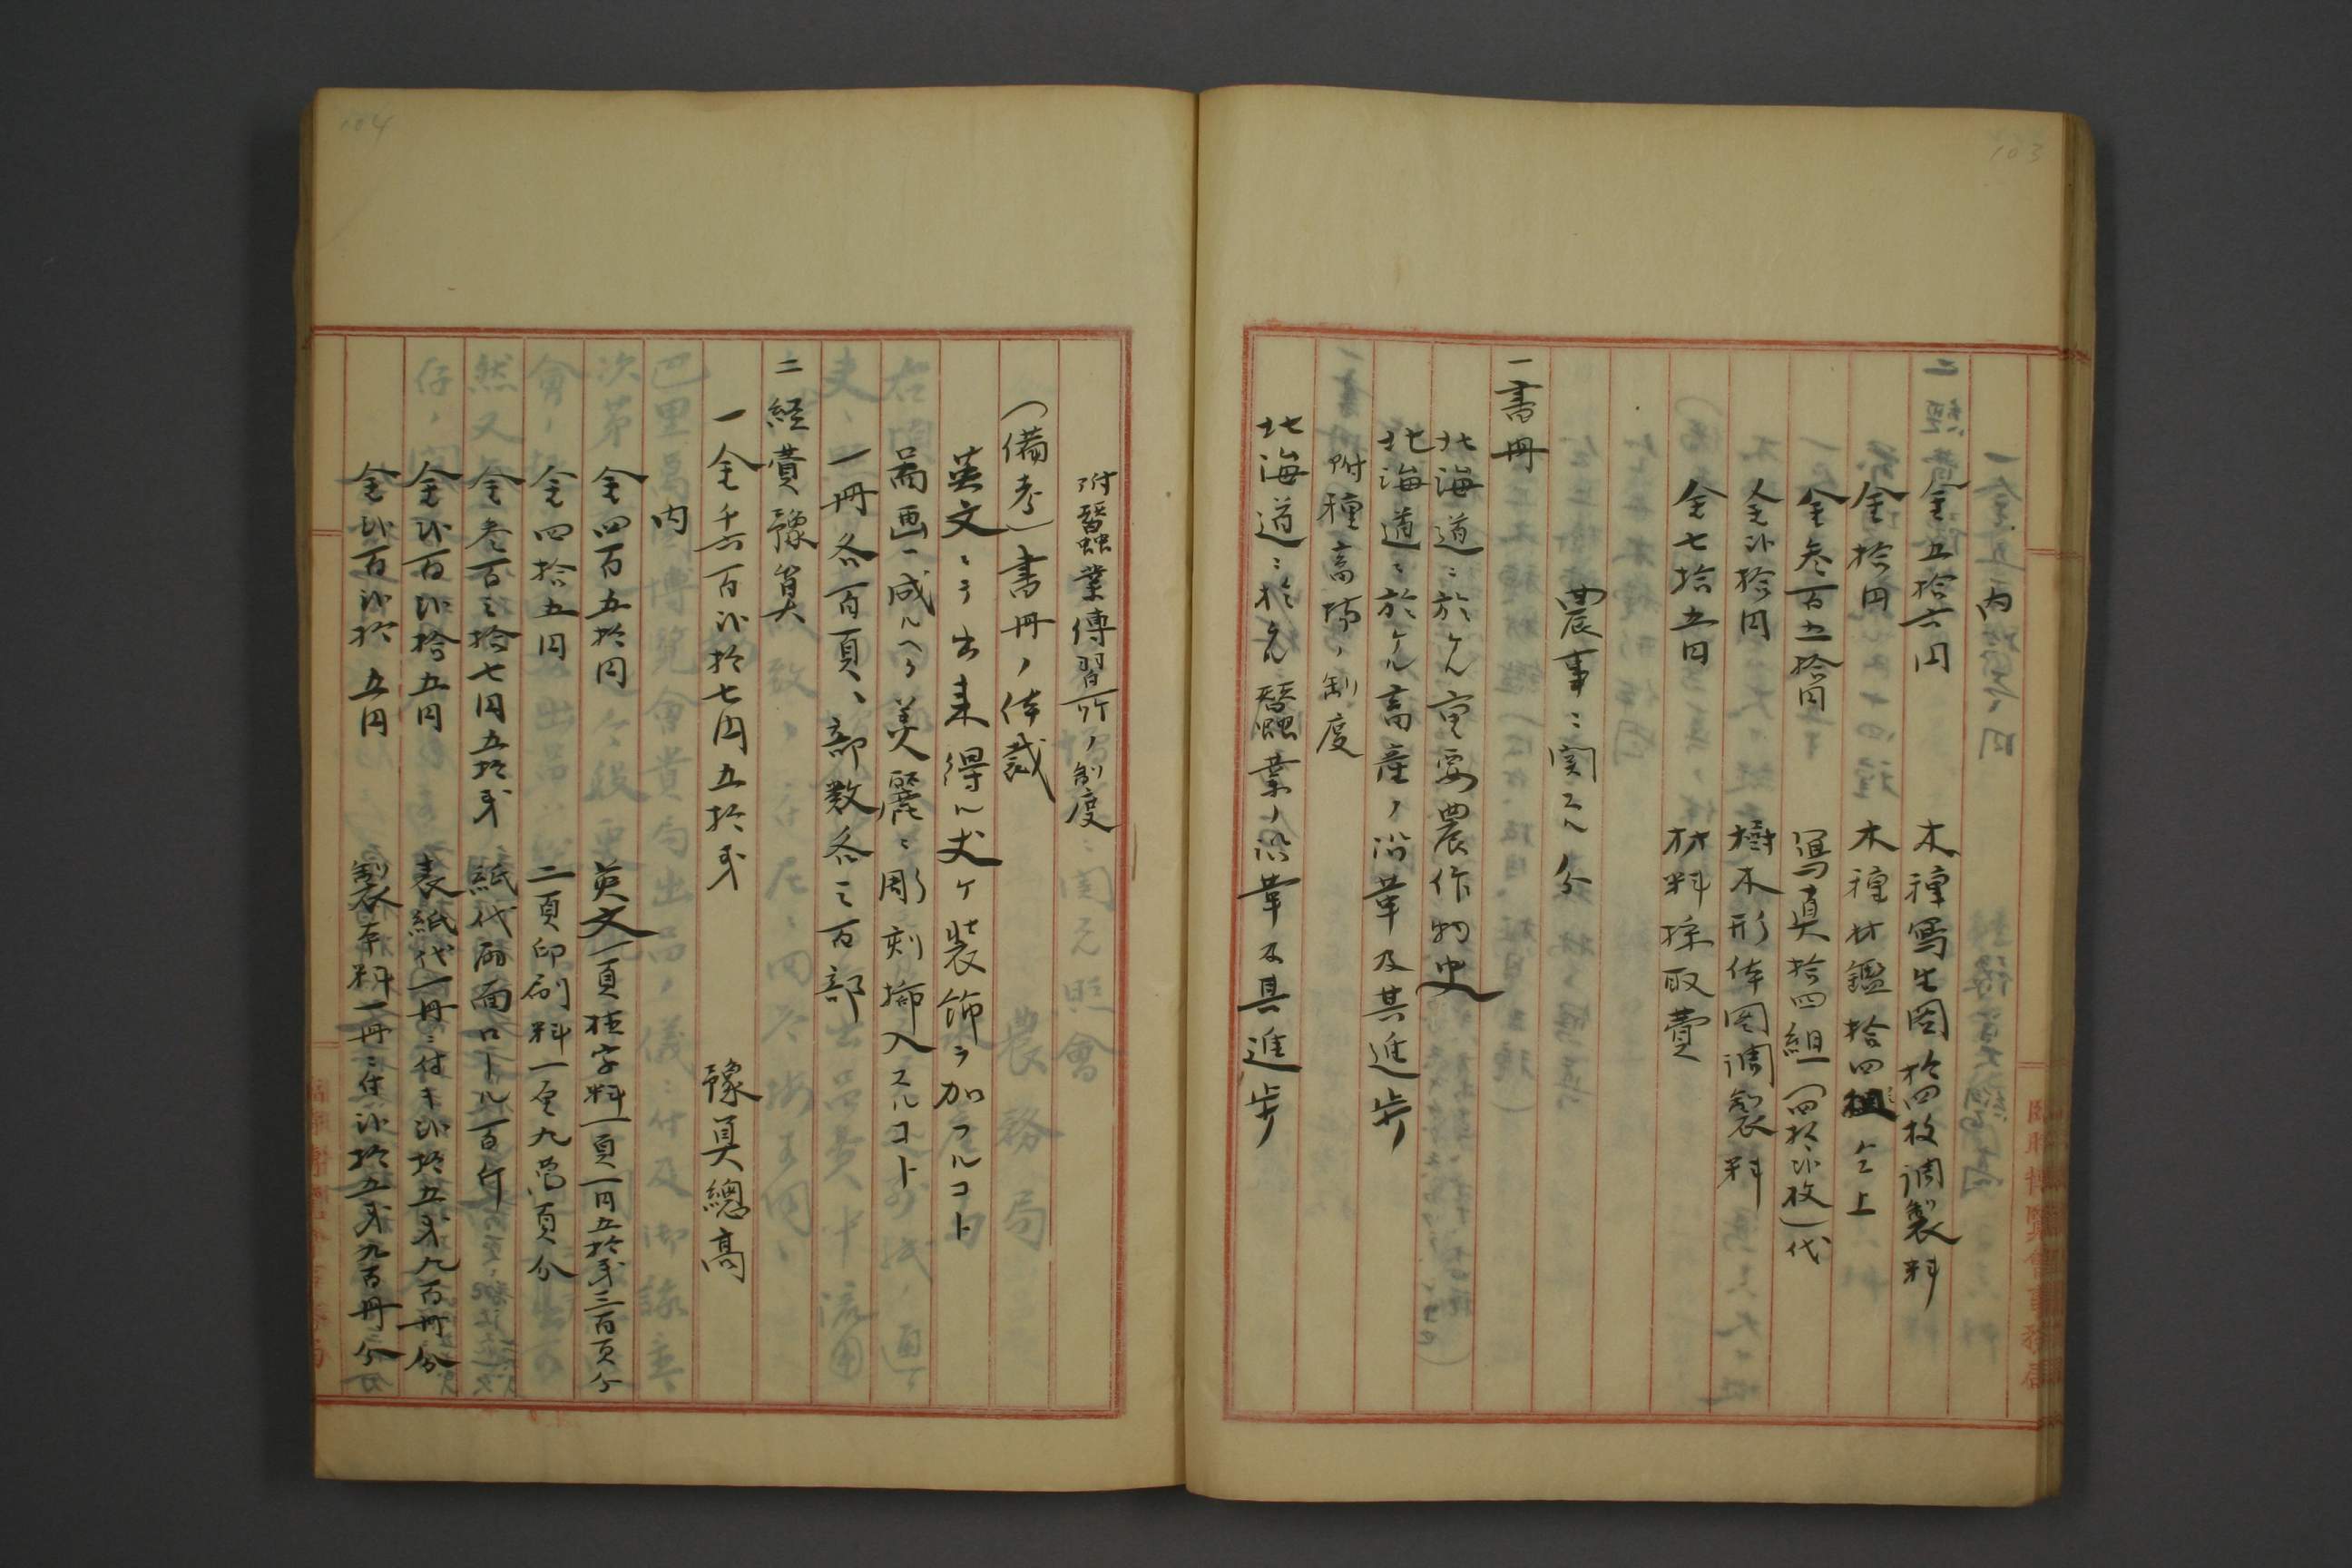 103
内
金五拾六円 木種写生図拾四枚調製料
金拾円 木種材鑑拾四組仝上
金参百五拾円 写真拾四組(四拾弐枚)代
金弐拾円 樹木形体図調製料
金七拾五円 材料採取費
農事ニ関スル分
一書冊
北海道ニ於ケル重要農作物史
北海道ニ於ケル畜産ノ沿革及其進歩
附種畜場ノ制度
北海道ニ於ル蚕業ノ沿革及其進歩
104
附蚕業傳習所ノ制度
(備考)書冊ノ体裁
英文ニテ出来得ル丈ケ装飾ヲ加フルコト
扁画ハ成ルヘク美麗ニ彫刻挿入スルコト
一冊各百頁、部数各三百部
二経費豫算
一金千六百弐拾七円五拾銭 豫算總高
内
金四百五拾円 英文一頁植字料一頁一円五拾銭三百頁分
金四拾五円 二頁印刷料一厘九萬頁分
金参百三拾七円五拾銭 紙代両面ロール百斤
金弐百弐拾五円 表紙代一冊ニ付キ弐拾五銭九百冊分
金弐百弐拾五円 製本料一冊ニ付弐拾五銭九百冊分
臨時博覧會事務局